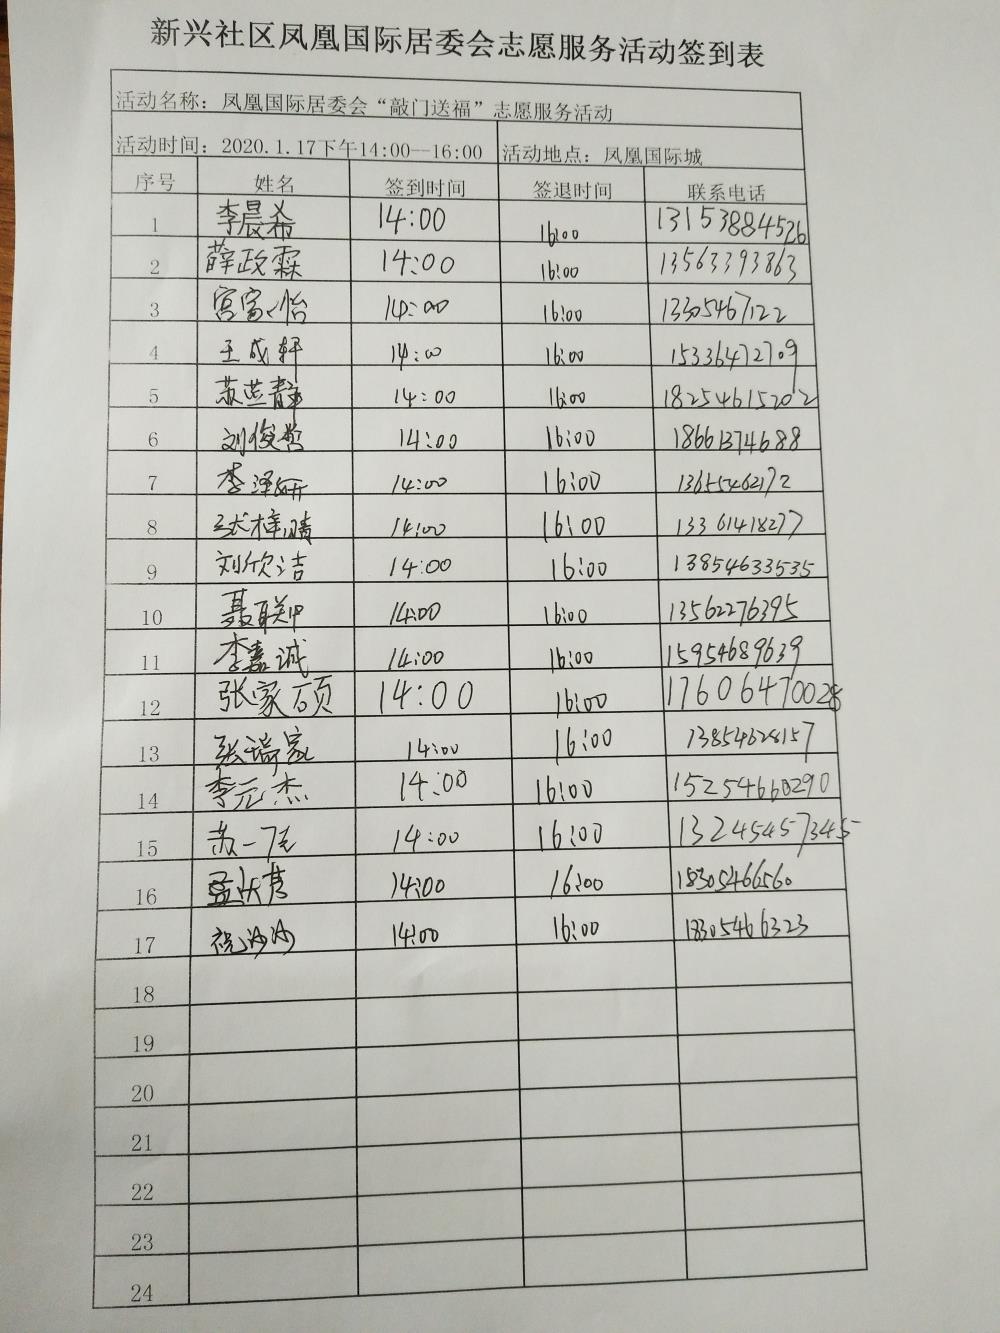 新兴社区凤凰国际居委会志愿服务活动签到表
活动名称：凤凰国际居委会“敲门送福”志愿服务活动
活动时间：2020.1.17下午14:00--16:00 活动地点：凤凰国际城
序号 姓名 签到时间 签退时间 联系电话
1 李晨希 14:00 16:00 13153884526
2 薛政霖 14:00 16:00 13563393863
3 宫富怡 14:00 16:00 13305467122
4 王成轩 14:00 16:00 15336472709
5 苏蓝静 14:00 16:00 18254615202
6 刘俊哲 14:00 16:00 18661374688
7 李泽妍 14:00 16:00 13655462172
8 张梓晴 14:00 16:00 13361418277
9 刘欣洁 14:00 16:00 13854633535
10 聂联甲 14:00 16:00 13562276395
11 李嘉诚 14:00 16:00 15954689639
12 张家硕 14:00 16:00 17606470028
13 张瑞家 14:00 16:00 13854628157
14 李元杰 14:00 16:00 15254660290
15 苏一 14:00 16:00 132454573455
16 孟庆 14:00 16:00 18305466560
17 祝沙沙 14:00 16:00 18305466323
18
19
20
21
22
23
24